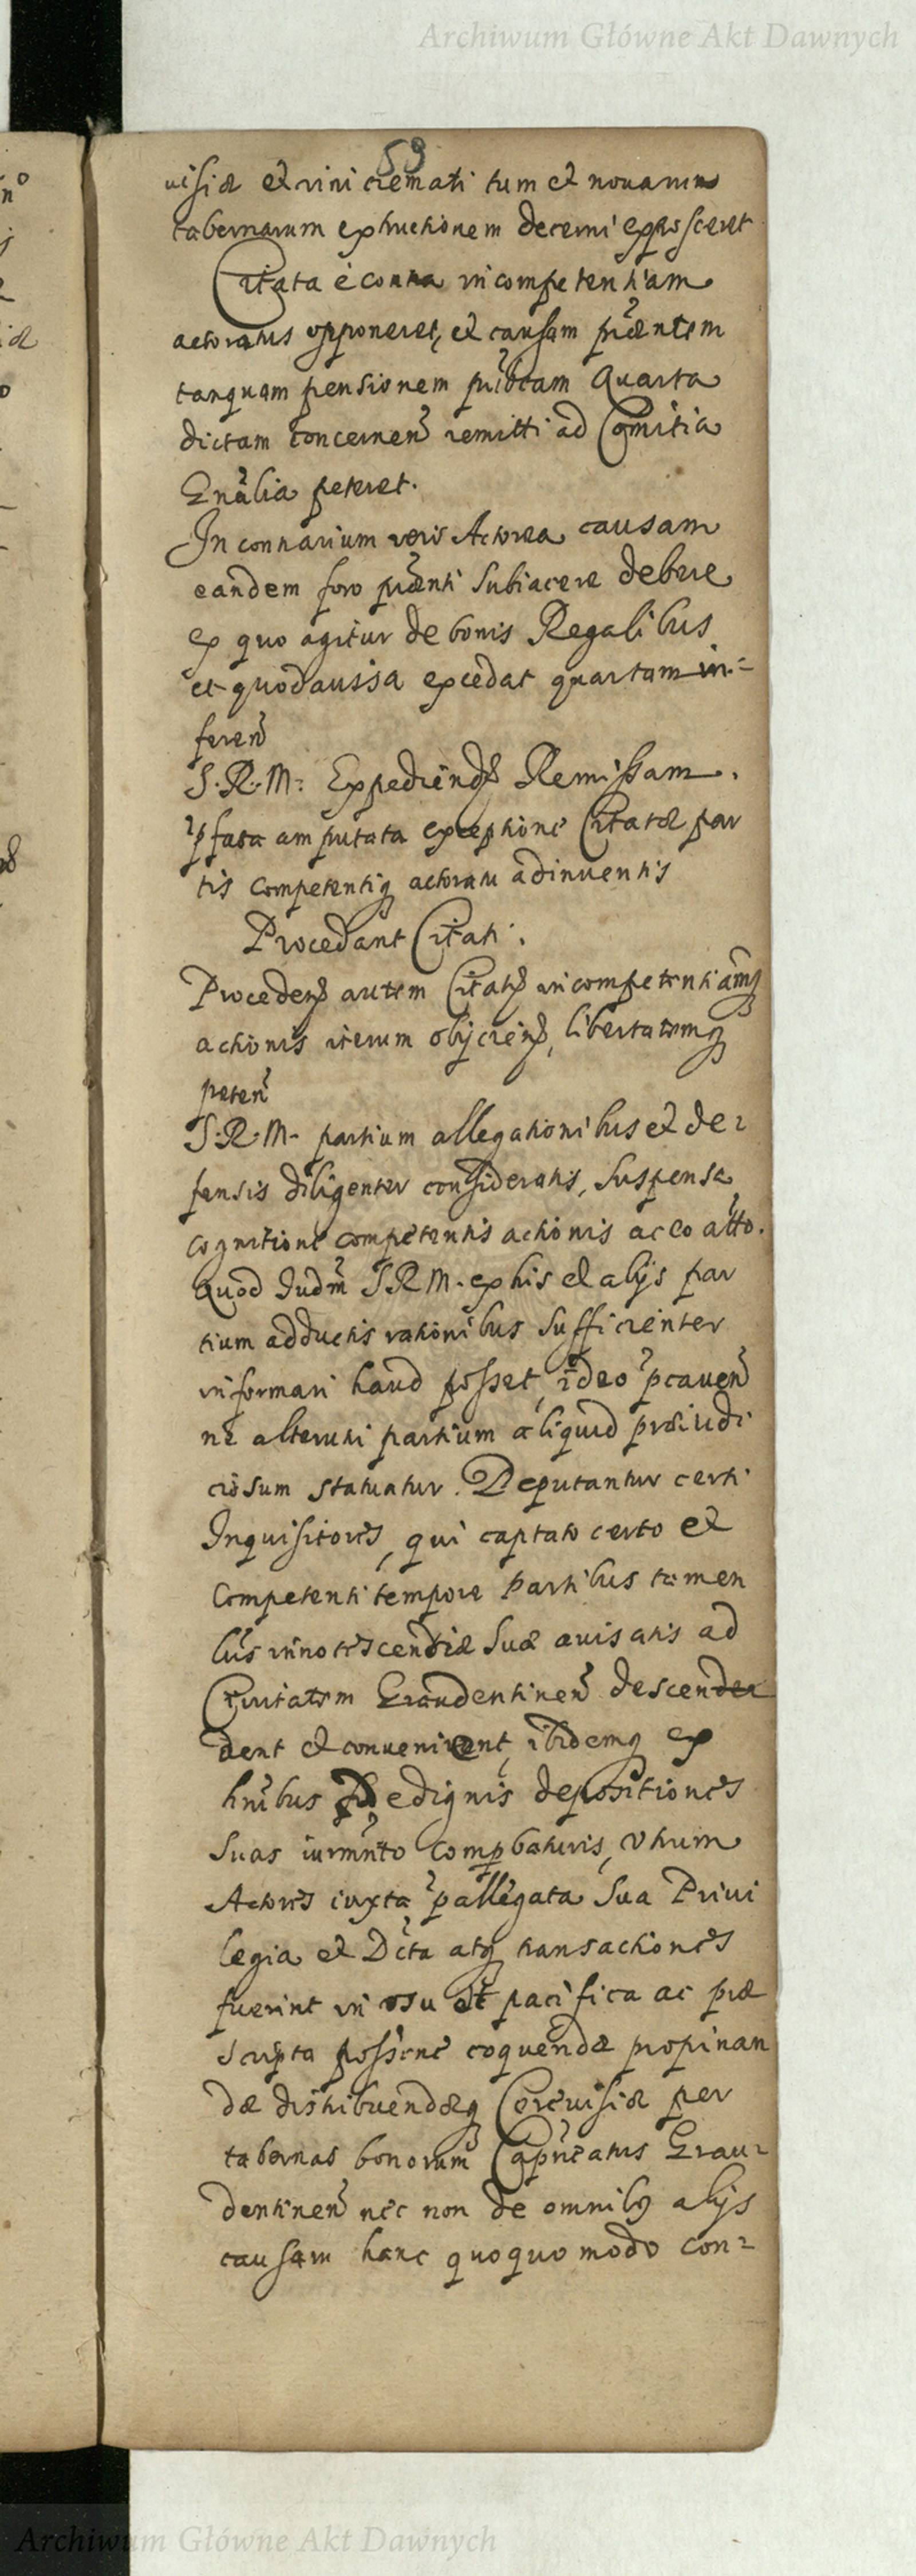 Archiwum Główne Akt Dawnych
59
uisiæ et vini cremati tum et nouarum
tabernarum extructionem decerni exposceret
Citata è contra incompetentiam
actoratus opponeret, et causam præntem
tanquam pensionem publcam Quarta
dictam concernen remitti ad Comitia
Gnãlia peteret.
In contrarium vero Actorea causam
eandem foro prænti subiacere debere
ex quo agitur de bonis Regalibus
et quod aussa excedat quartam in=
feren
S. R. M: Expediend Remissam.
pfata amputata exceptione Citatæ par
tis competentiq actoratu adinuentis
Procedant Citati.
Procedend autem Citatis incompetentiamq
actionis iterum obijcien, libertatemq
peten
S. R. M. partium allegationibus et de=
fensis diligenter consideratis, suspensa
cognitione competentis actionis ac eo atto.
Quod Iudm S R M. ex his et alijs par
tium adductis rationibus sufficienter
informari haud posset, ideo pcauen
ne alterutri partium aliquid præiudi
ciosum statuatur. Deputantur certi
Inquisitores, qui captato certo et
Competenti tempore Partibus tamen
lris innotescentiæ suæ auisatis ad
Ciuitatem Graudentinen descender
dent et conuenient, ibidemq ex
hnibus fidedignis depositiones
suas iurmnto compbaturis, Vtrum
Actores iuxta pallegata sua Priui
legia et Dcta atq transactiones
fuerint in vsu et pacifica ac præ
scripta possene coquendæ propinan
dæ distribuendæq Cereuisiæ per
tabernas bonorum Capneatus Grau=
dentinen nec non de omnibq alijs
causam hanc quoquo modo con=
Archiwum Główne Akt Dawnych